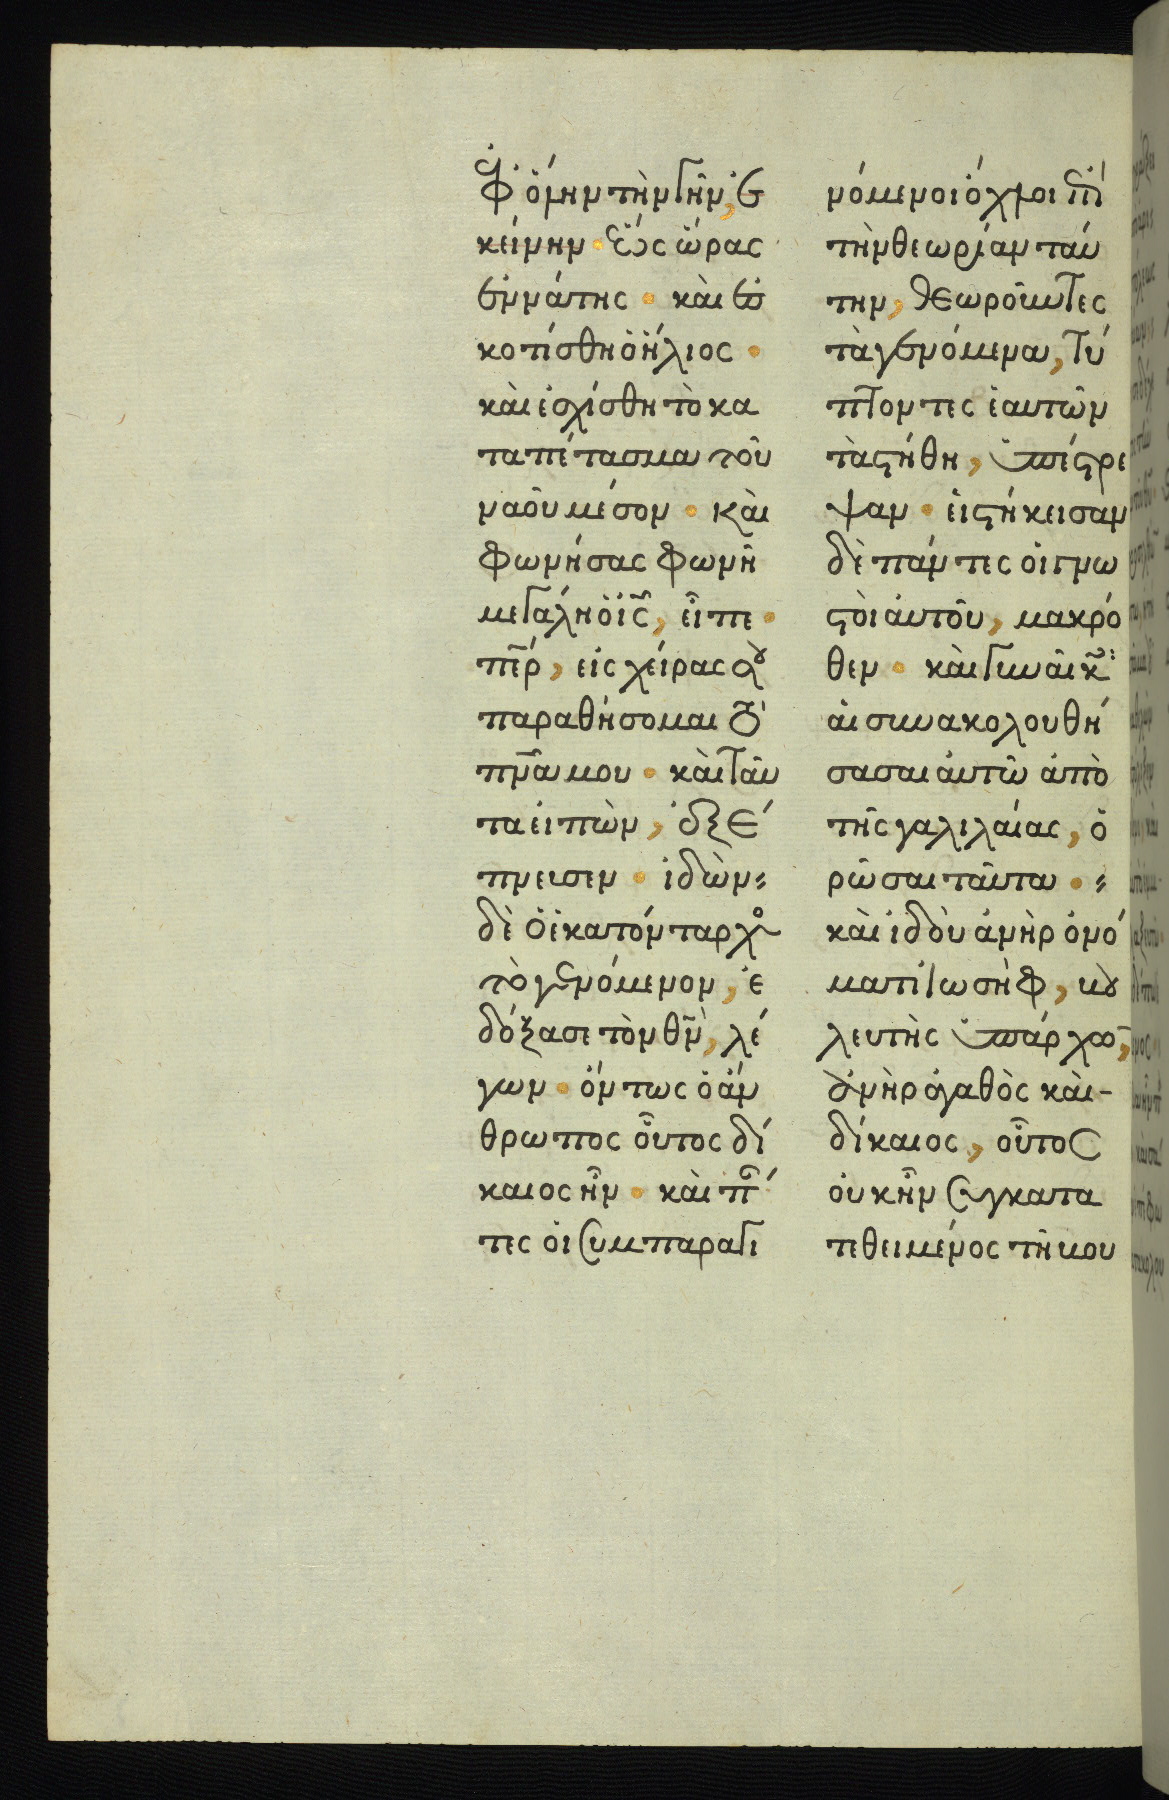 ἐφ ὅλην τὴν γῆν, ἐ
κείνην · ἕως ὥρας
ἐννάτης · καὶ ἐσ
κοτίσθη ὁ ἥλιος ·
καὶ ἐσχίσθη τὸ κα
ταπέτασμα τοῦ
ναοῦ μέσον · καὶ
φωνήσας φωνῆ
μεγάλη ὁ ἰς̃, εἶπε ·
πε̃ρ, εἰς χεῖρας σου
παραθήσομαι τὸ
πνα̃ μου · καὶ ταῦ
τα εἰπὼν, ἐξέ
πνευσεν · ἰδὼν
δὲ ὁ ἑκατόνταρχος
τὸ γενόμενον, ἐ
δόξασε τὸν θν̃, λέ
γων · ὄντως ὁ ἄν
θρωπος οὗτος δί
καιος ἦν · καὶ πάν
τες οἱ συμπαραγι
νόμενοι ὄχλοι ἐπὶ
τὴν θεωρίαν ταύ
την, θεωροῦντες
τὰ γενόμενα, τύ
πτοντες ἑαυτῶν
τὰ στήθη, ὑπέστρε
ψαν · εἰστήκεισαν
δὲ πάντες οἱ γνω
στοὶ αὐτοῦ, μακρό
θεν · καὶ γυναῖκες
αἱ συνακολουθή
σασαι αὐτῶ ἀπὸ
τῆς γαλιλαίας, ὁ
ρῶσαι ταῦτα ·
καὶ ἰδοὺ ἀνὴρ ὀνό
ματι ἰωσὴφ, βου
λευτὴς ὑπάρχων,
ἀνὴρ ἀγαθὸς καὶ -
δίκαιος, οὗτος
οὐκ ἦν συγκατα
τεθειμένος τῆ βου